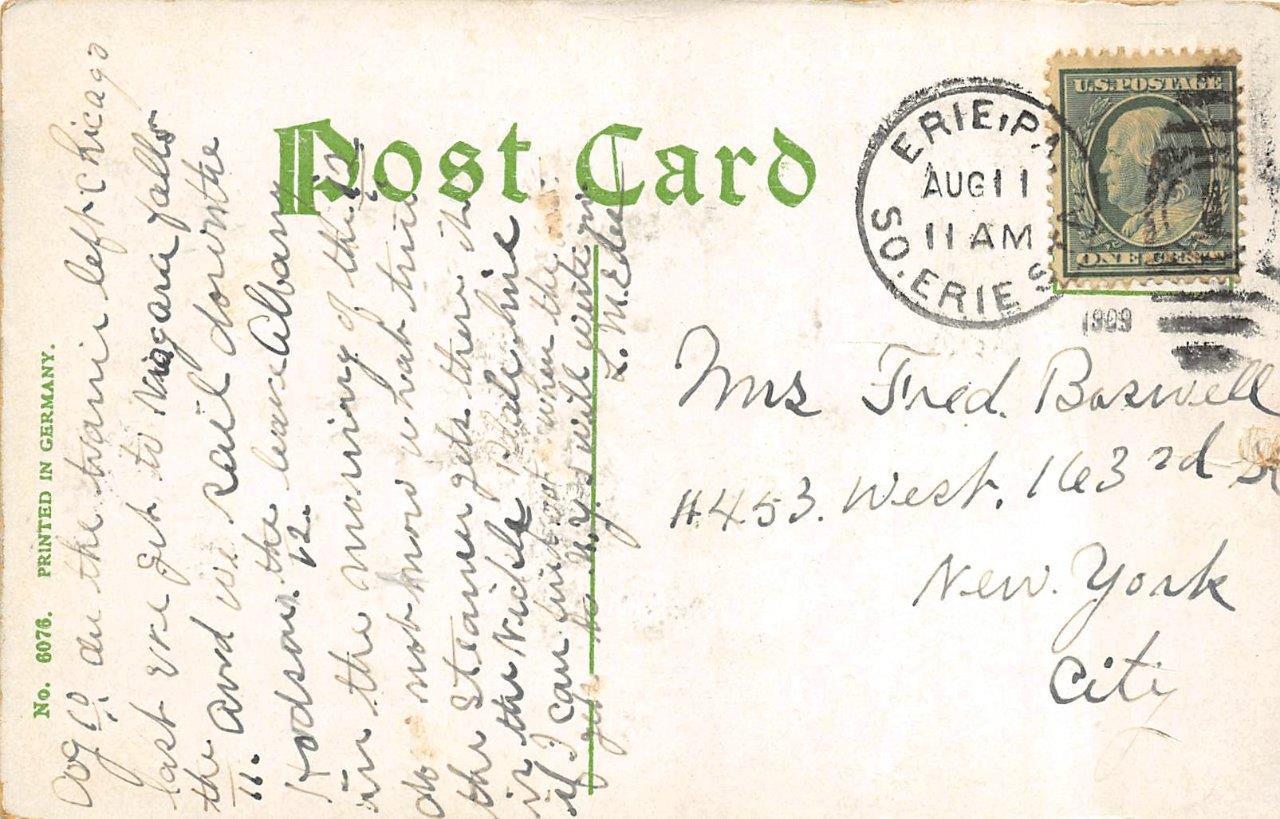 Post Card
No. 6076. PRINTED IN GERMANY.
ERIE, PA.
AUG 11
11 AM
1909
SO. ERIE STA.
U.S. POSTAGE
ONE CENT
Aug 10 on the train left Chicago
last eve get to Niagara falls
the 11. and we sail down the
Hodson the 12. leave Albany
in the morning of the 12
do not know what time
the Steamer gets there it
is the Nickle Plate line
if I can find out when the
get to N.Y. will write
L. M.
Mrs Fred. Boswell
#453. West. 163rd St
New. York
City